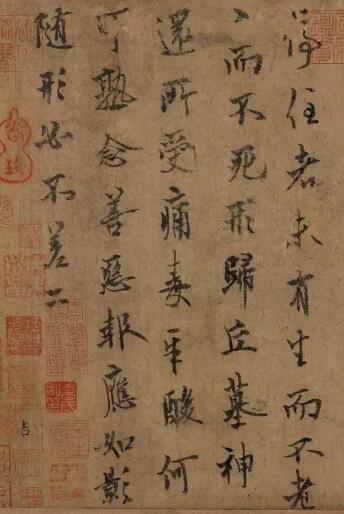 停住者未有生而不老
〻而不死形歸丘墓神
還所受痛毒辛酸何
可熟念善惡報應如影
隨形必不差二